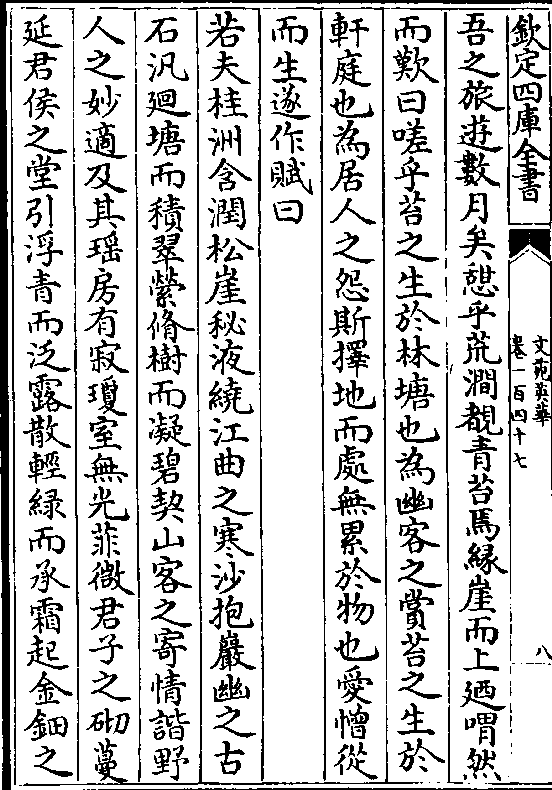 欽定四庫全書
文苑英華
卷一百四十七
八
吾之旅遊數月矣憇乎荒澗覩青苔焉緣崖而上廼喟然
而歎曰嗟乎苔之生於林塘也為幽客之賞苔之生於
軒庭也為居人之怨斯擇地而處無累於物也愛憎從
而生遂作賦曰
若夫桂洲含潤松崖秘液繞江曲之寒沙抱巖幽之古
石汎廻塘而積翠縈脩樹而凝碧契山客之寄情諧野
人之妙適及其瑶房有寂瓊室無光霏微君子之砌蔓
延君侯之堂引浮青而泛露散輕緑而承霜起金鈿之